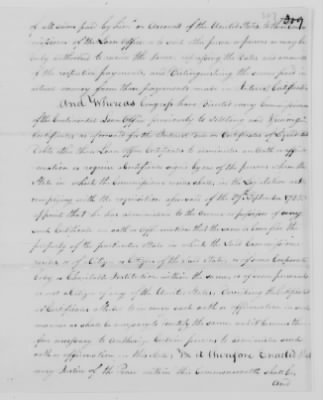 309
of all sums paid by him on Account of the United States to the
of the Loan Office to such other person or persons as may be
duly authorised to receive the same expressing the dates and amounts
of the respective payments, and distinguishing the sums paid in
actual money from those payments made in Interest Certificates
And Whereas Congress have directed every Commissioner
of the Continental Loan Office previously to Settling and renewing
Certificates as aforesaid for the Interest due on Certificates of liquidated
Debts other than Loan Office Certificates to administer an Oath or affir-
mation or require a Certificate signed by one of the persons whom the
State in which the Commissioner resides shall, in the Legislative act
complying with the requisition aforesaid of the 27th September 1785
appoint that he has administered to the Owner or possessor of every
such Certificate an oath or affirmation that the same is bona fide the
property of the particular State in which the Said Commissioner
resides, or of a Citizen or Citizens of the said State, or of some Corporate
Body or Charitable Institution within the same, or of some person who
is not a Citizen of any of the United States, Describing the Certificate
or Certificates &
such oath or affirmation in such
manner as shall be necessary to identify the same, and it becometh
necessary to authorize Certain persons to administer such
oath or affirmation in this State, Be it therefore Enacted that
every Justice of the Peace within this Commonwealth shall be,
and